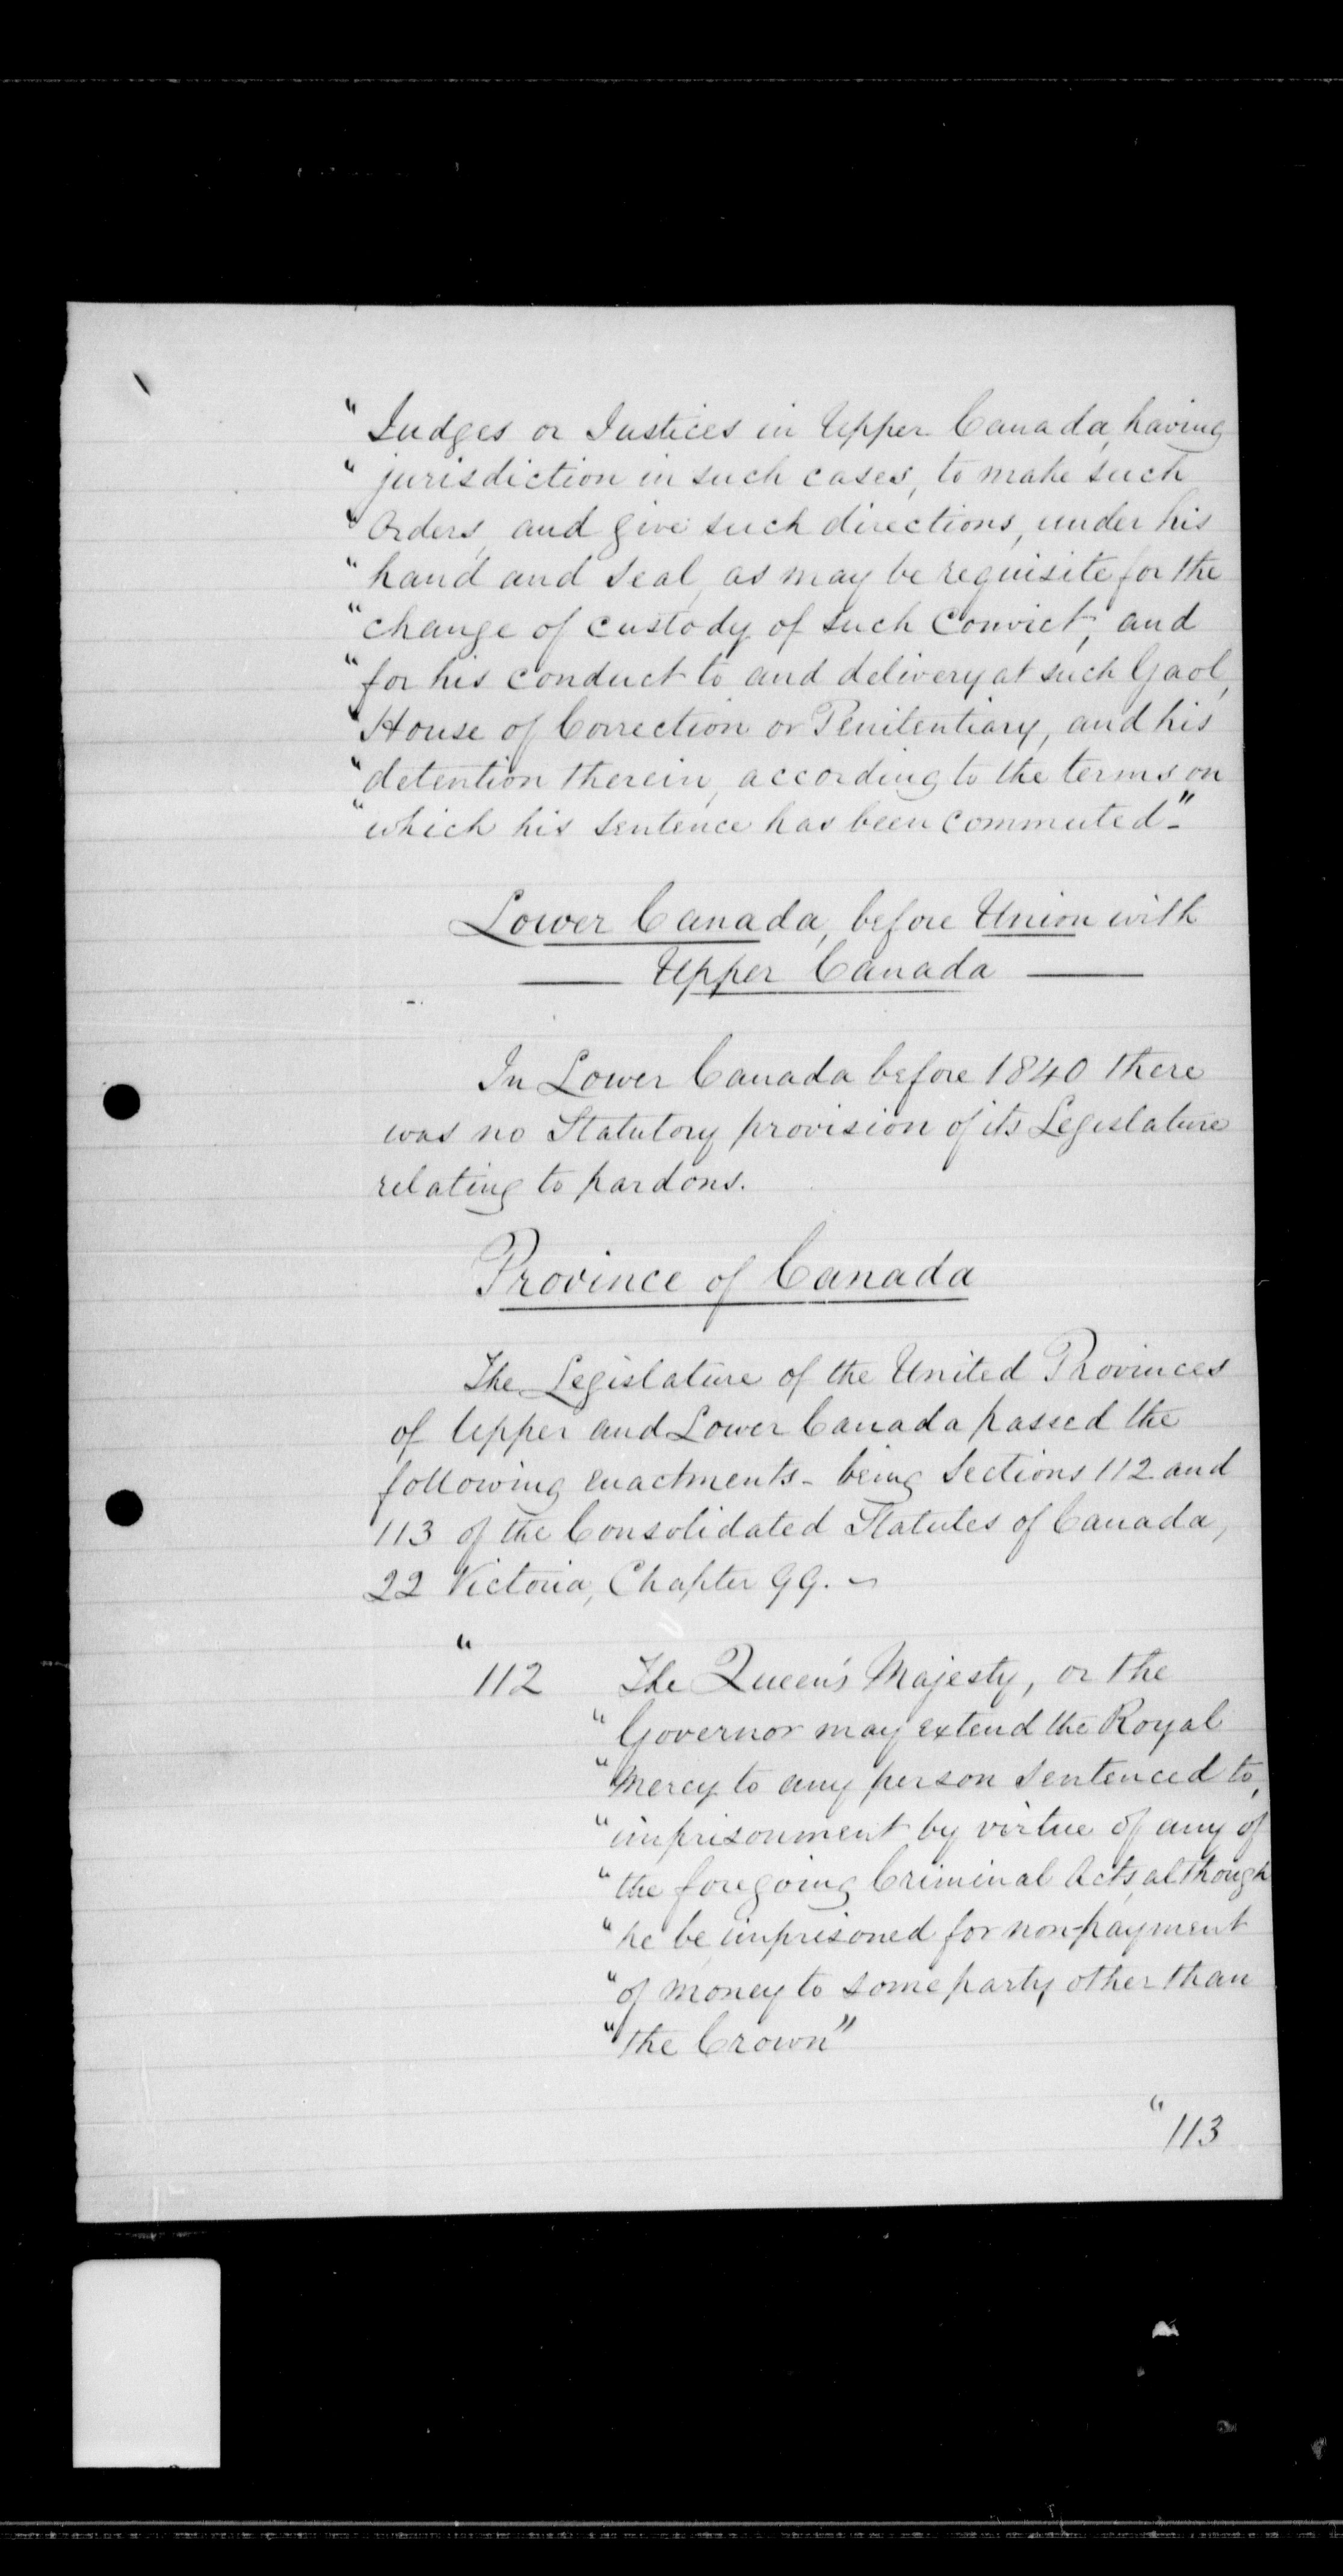 "Judges or Justices in Upper Canada, having
"jurisdiction in such cases, to make such
"Orders, and give such directions, under his
"hand and Seal, as may be requisite for the
"change of custody of such Convict, and
"for his conduct to and delivery at such Gaol,
"House of Correction or Penitentiary, and his
"detention therein, according to the terms on
"which his sentence has been commuted."
Lower Canada, before Union with
Upper Canada
In Lower Canada before 1840 there
was no Statutory provision of its Legislature
relating to pardons.
Province of Canada
The Legislature of the United Provinces
of Upper and Lower Canada passed the
following enactments - being Sections 112 and
113 of the Consolidated Statutes of Canada,
22 Victoria, Chapter 99. -
"112 The Queen's Majesty, or the
"Governor may extend the Royal
"Mercy to any person sentenced to,
"imprisonment by virtue of any of
"the foregoing Criminal Acts, although
"he be imprisoned for non-payment
"of money to some party other than
"the Crown"
"113